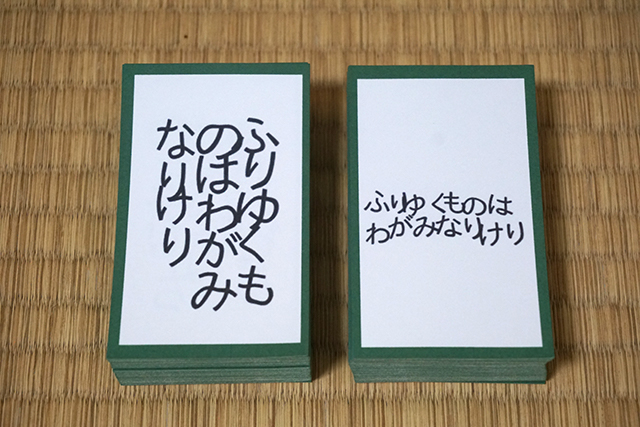 ふりゆくも
のはわがみ
なりけり
ふりゆくものは
わがみなりけり